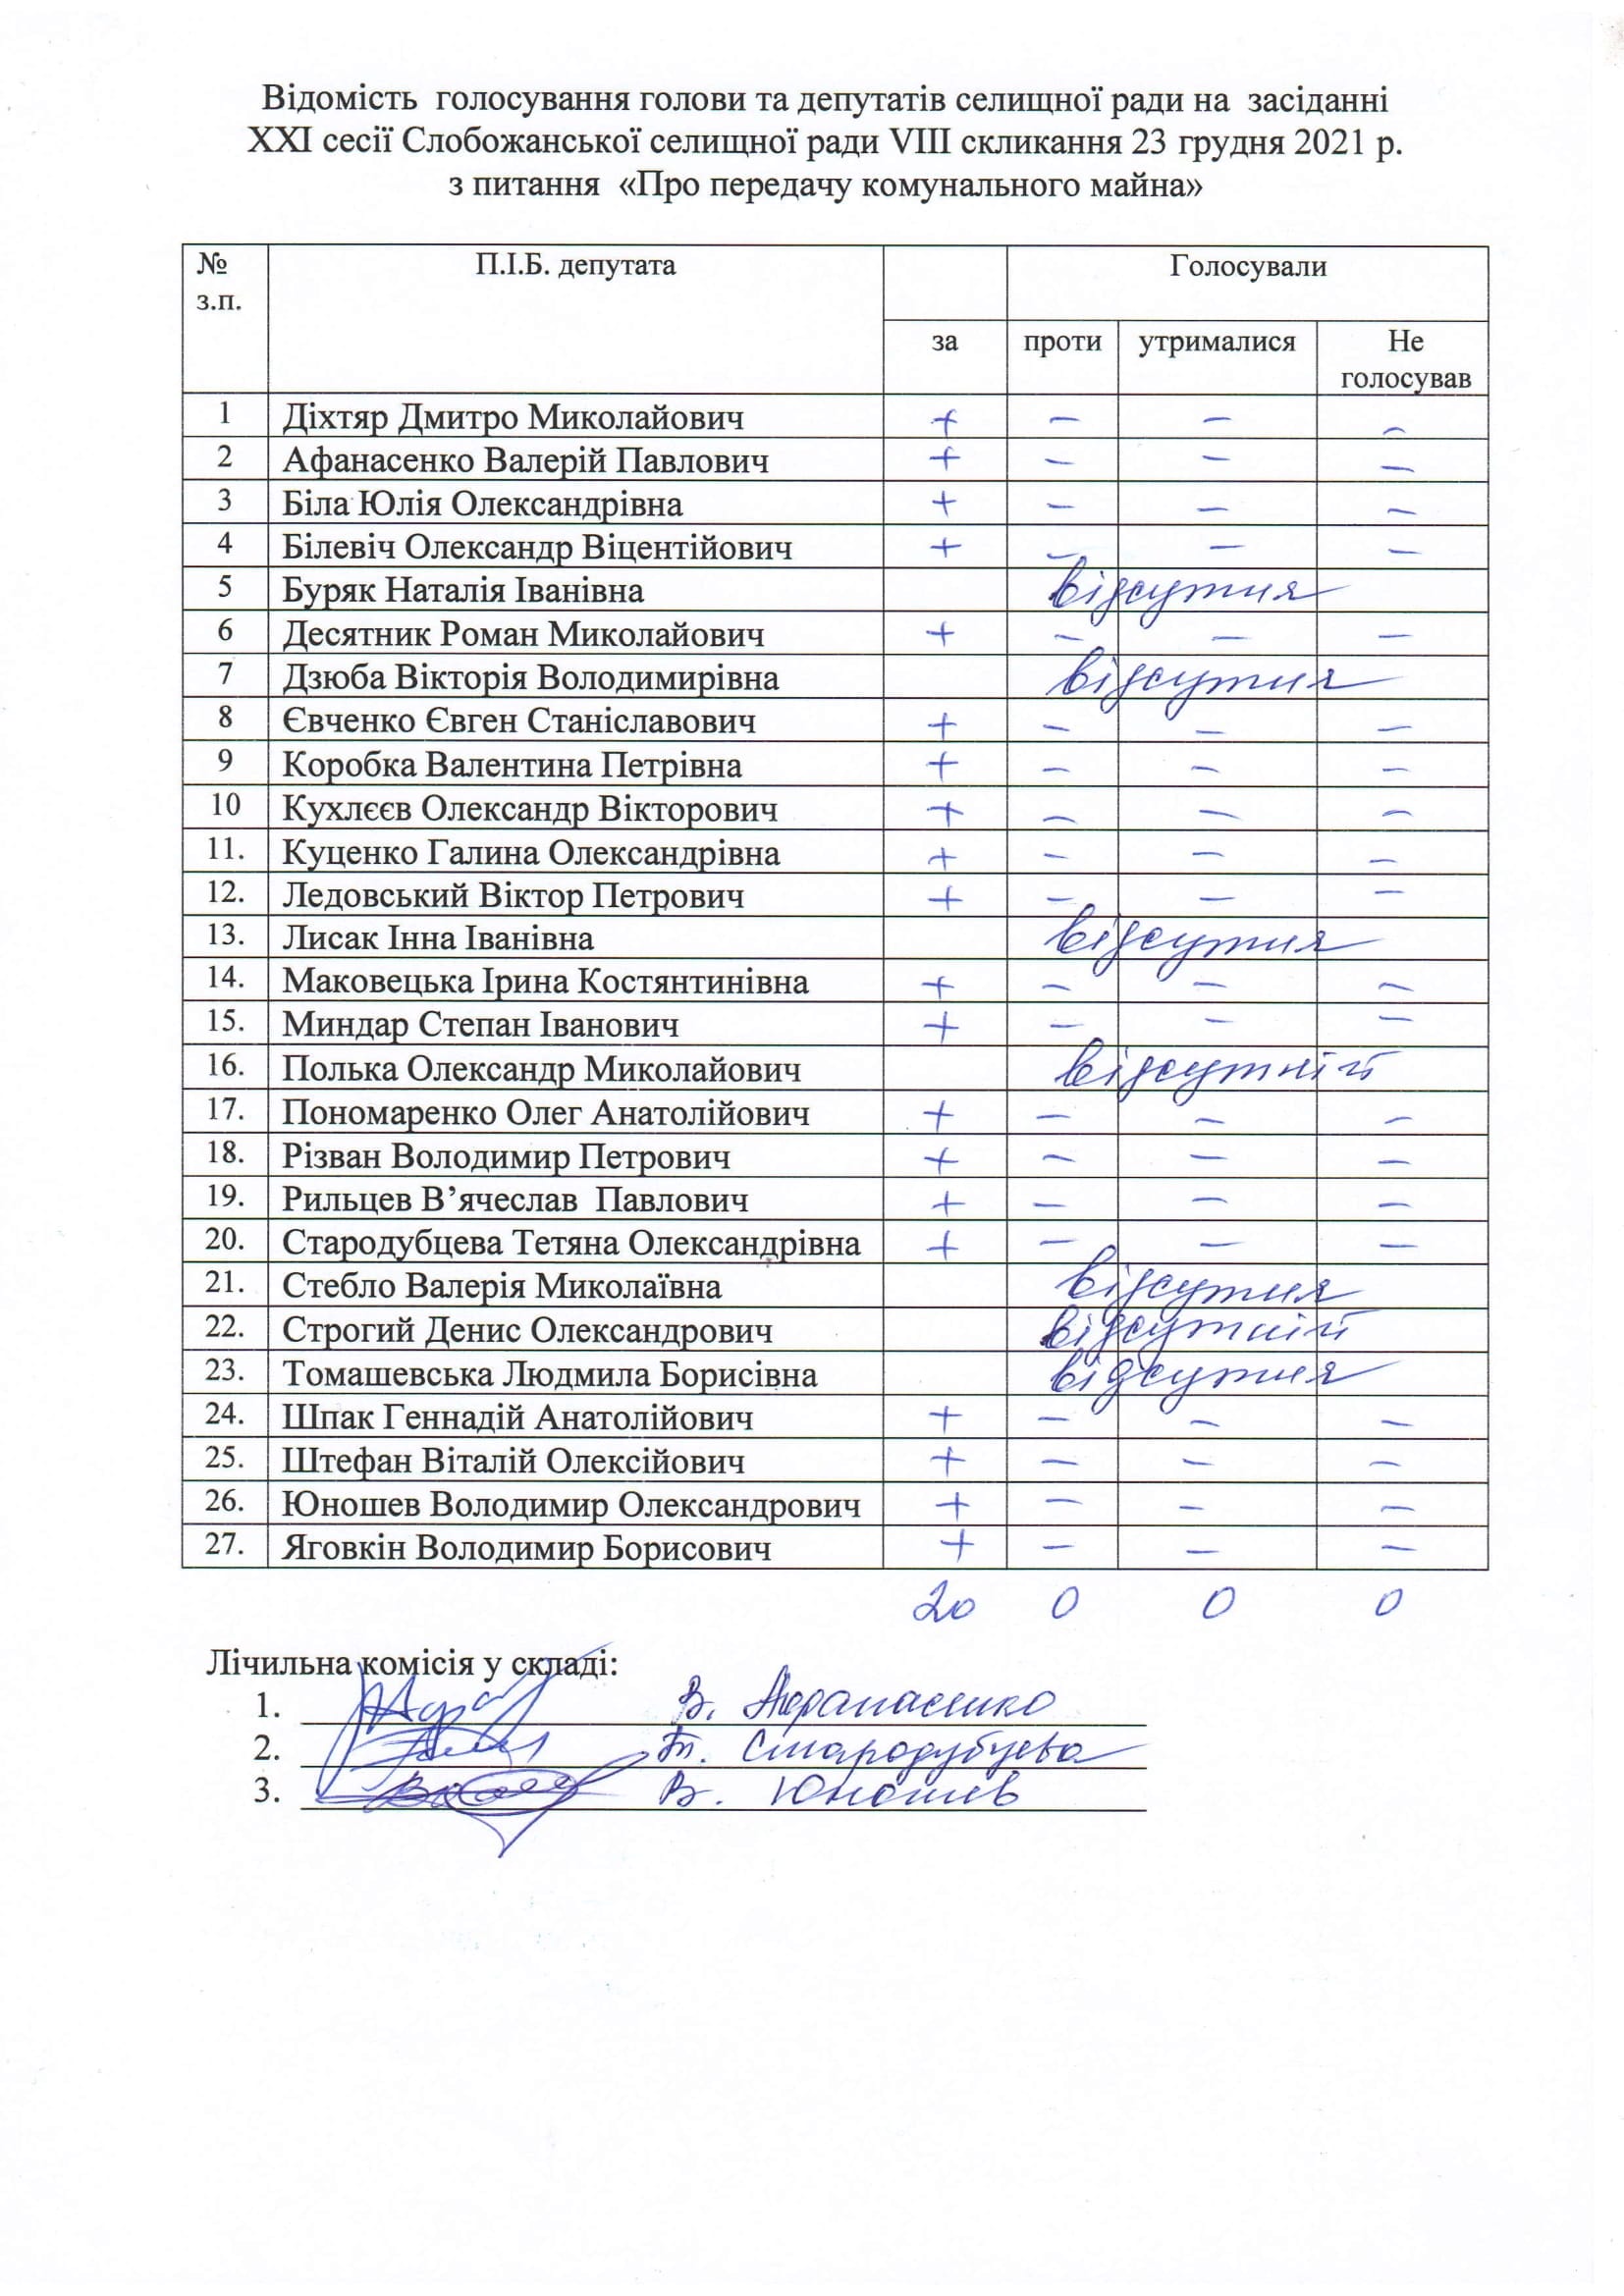 Відомість голосування голови та депутатів селищної ради на засіданні
XXI сесії Слобожанської селищної ради VIII скликання 23 грудня 2021 р.
з питання «Про передачу комунального майна»
№ з.п. П.І.Б. депутата Голосували
за проти утрималися Не голосував
1 Діхтяр Дмитро Миколайович + – – –
2 Афанасенко Валерій Павлович + – – –
3 Біла Юлія Олександрівна + – – –
4 Білевіч Олександр Віцентійович + – – –
5 Буряк Наталія Іванівна відсутня
6 Десятник Роман Миколайович + – – –
7 Дзюба Вікторія Володимирівна відсутня
8 Євченко Євген Станіславович + – – –
9 Коробка Валентина Петрівна + – – –
10 Кухлєєв Олександр Вікторович + – – –
11. Куценко Галина Олександрівна + – – –
12. Ледовський Віктор Петрович + – – –
13. Лисак Інна Іванівна відсутня
14. Маковецька Ірина Костянтинівна + – – –
15. Миндар Степан Іванович + – – –
16. Полька Олександр Миколайович відсутній
17. Пономаренко Олег Анатолійович + – – –
18. Різван Володимир Петрович + – – –
19. Рильцев В’ячеслав Павлович + – – –
20. Стародубцева Тетяна Олександрівна + – – –
21. Стебло Валерія Миколаївна відсутня
22. Строгий Денис Олександрович відсутній
23. Томашевська Людмила Борисівна відсутня
24. Шпак Геннадій Анатолійович + – – –
25. Штефан Віталій Олексійович + – – –
26. Юношев Володимир Олександрович + – – –
27. Яговкін Володимир Борисович + – – –
20 0 0 0
Лічильна комісія у складі:
1. В. Афанасенко
2. Т. Стародубцева
3. В. Юношев